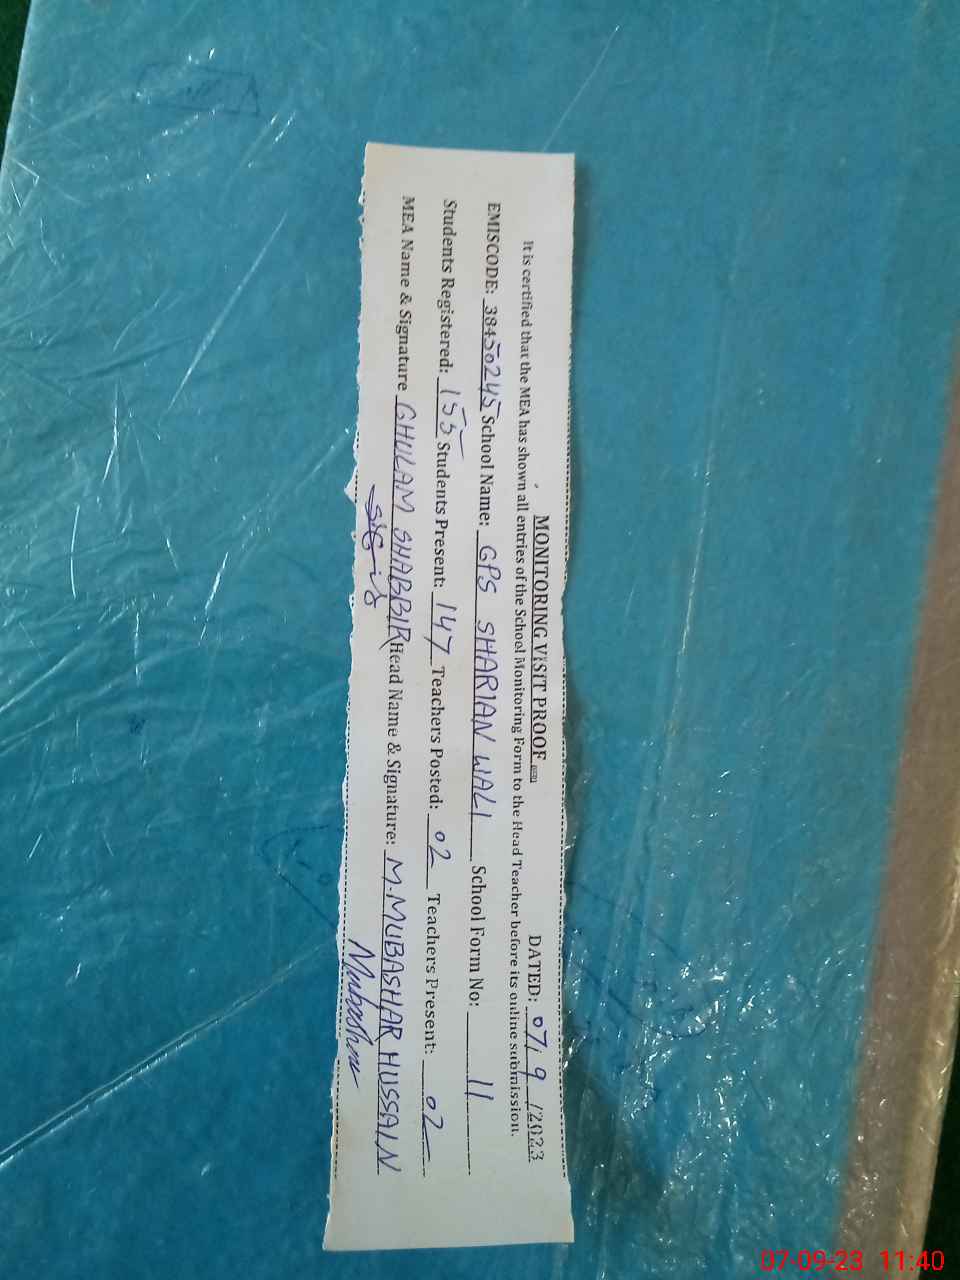 MONITORING VISIT PROOF
DATED: 07/9/2023
It is certified that the MEA has shown all entries of the School Monitoring Form to the Head Teacher before its online submission.
EMISCODE: 38450245 School Name: GPS SHARIAN WALI School Form No: 11
Students Registered: 155 Students Present: 147 Teachers Posted: 02 Teachers Present: 02
MEA Name & Signature GHULAM SHABBIR Head Name & Signature: M.MUBASHAR HUSSAIN
Mubashar
07-09-23 11:40